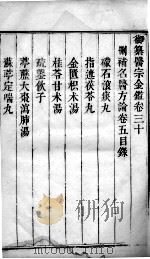 御纂醫宗金鑑卷三十
刪補名醫方論卷五目錄
礞石滾痰丸
指迷茯苓丸
金匱枳朮湯
桂苓甘朮湯
疏鑿飲子
葶藶大棗瀉肺湯
蘇葶定喘丸